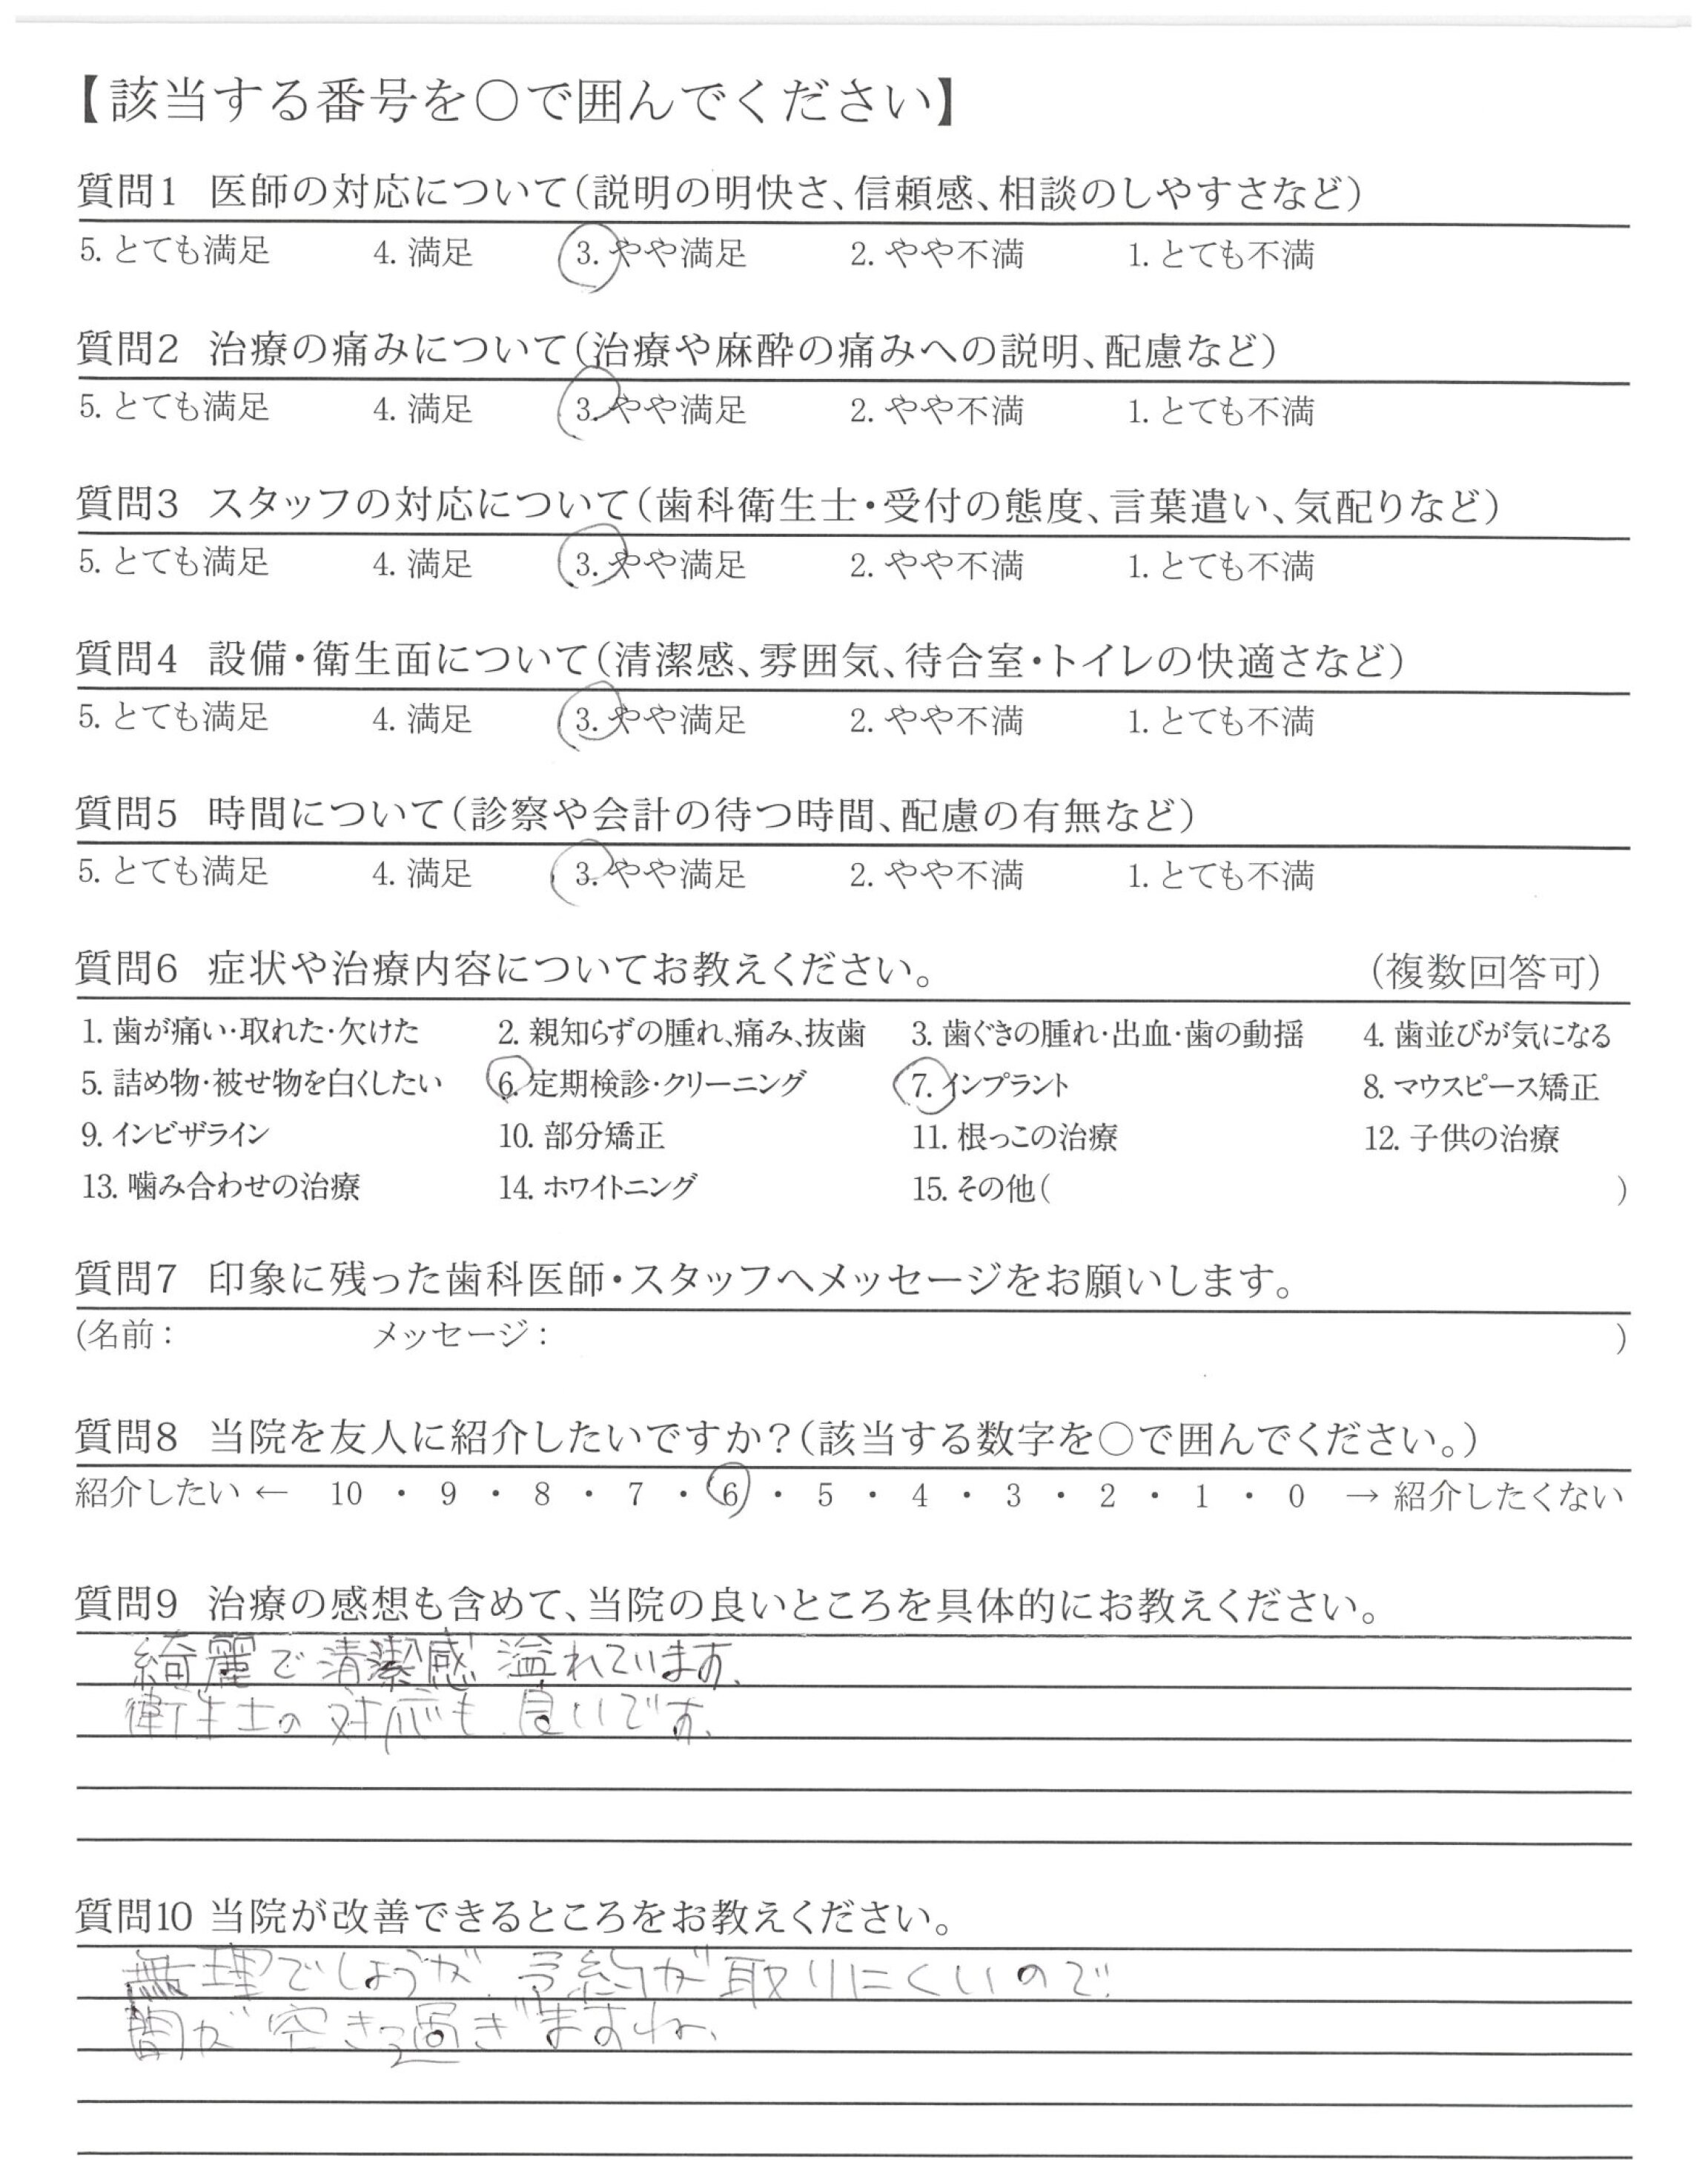 【該当する番号を○で囲んでください】
質問1 医師の対応について(説明の明快さ、信頼感、相談のしやすさなど)
5. とても満足 4. 満足 3. やや満足 2. やや不満 1. とても不満
質問2 治療の痛みについて(治療や麻酔の痛みへの説明、配慮など)
5. とても満足 4. 満足 3. やや満足 2. やや不満 1. とても不満
質問3 スタッフの対応について(歯科衛生士・受付の態度、言葉遣い、気配りなど)
5. とても満足 4. 満足 3. やや満足 2. やや不満 1. とても不満
質問4 設備・衛生面について(清潔感、雰囲気、待合室・トイレの快適さなど)
5. とても満足 4. 満足 3. やや満足 2. やや不満 1. とても不満
質問5 時間について(診察や会計の待つ時間、配慮の有無など)
5. とても満足 4. 満足 3. やや満足 2. やや不満 1. とても不満
質問6 症状や治療内容についてお教えください。 (複数回答可)
1. 歯が痛い・取れた・欠けた 2. 親知らずの腫れ、痛み、抜歯 3. 歯ぐきの腫れ・出血・歯の動揺 4. 歯並びが気になる
5. 詰め物・被せ物を白くしたい 6. 定期検診・クリーニング 7. インプラント 8. マウスピース矯正
9. インビザライン 10. 部分矯正 11. 根っこの治療 12. 子供の治療
13. 噛み合わせの治療 14. ホワイトニング 15. その他( )
質問7 印象に残った歯科医師・スタッフへメッセージをお願いします。
(名前: メッセージ: )
質問8 当院を友人に紹介したいですか?(該当する数字を○で囲んでください。)
紹介したい ← 10 ・ 9 ・ 8 ・ 7 ・ 6 ・ 5 ・ 4 ・ 3 ・ 2 ・ 1 ・ 0 → 紹介したくない
質問9 治療の感想も含めて、当院の良いところを具体的にお教えください。
綺麗で清潔感 溢れています。
衛生士の対応も良いです。
質問10 当院が改善できるところをお教えください。
無理でしょうが、予約が取りにくいので
間が空き過ぎますね、